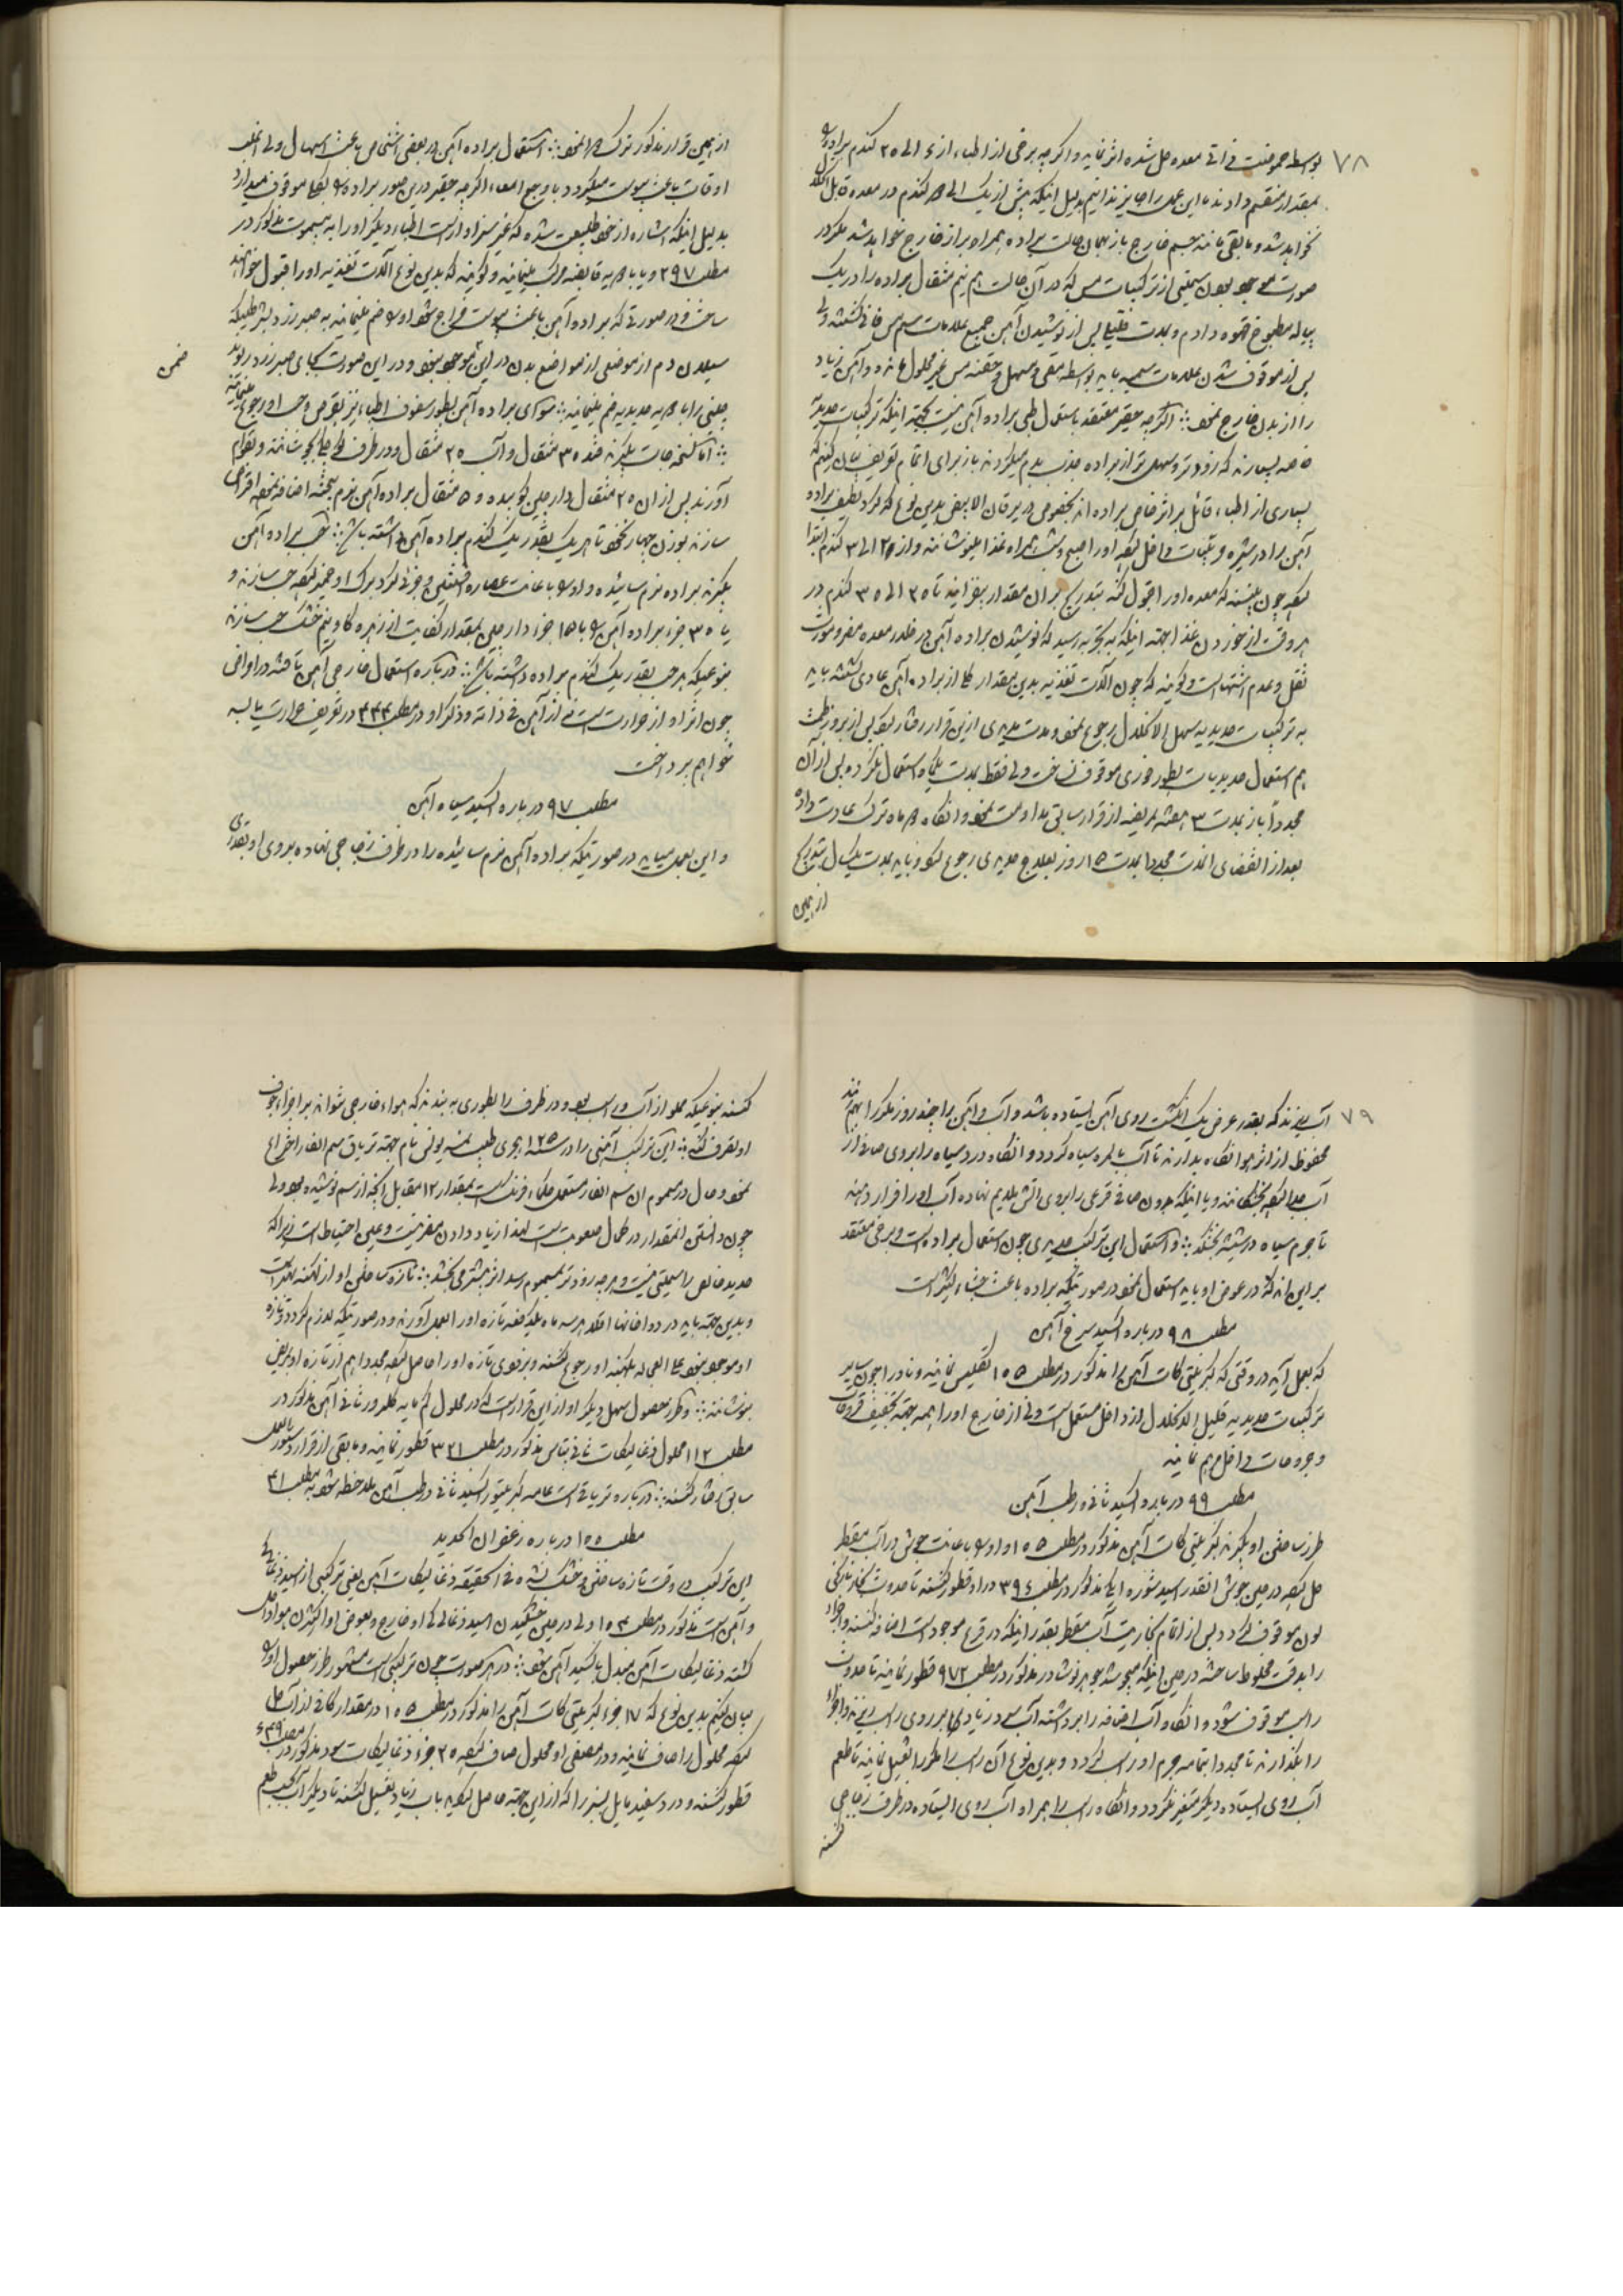 ٧٨
بواسطه حموضت فی ذاتی معده حل شده اثر نماید و اگر چه برخی از اطباء از ۴ الی ٢٥ گندم براده
بمقدار منقسم دادند ما این عمل را جایز ندانیم بدلیل اینکه بیش از یک الی گندم در معده قابل
نخواهد شد و مابقی مانند جسم خارج باز بهمان حالت براده همراه براز خارج خواهد شد مگر در
صورت موجود بودن سمیتی از ترکیبات مس که در آن حالت هم نیم مثقال براده را در یک
پیاله مطبوخ قهوه دادم و بمدت قلیلی پس از نوشیدن آهن جمیع علامات سم مس فانی گشته ولی
پس از موقوف شدن علامات سمیه باید بواسطه مقی و مسهل و حقنه مس غیر محلول مانده و آهن زیاد
را از بدن خارج نمود اگرچه حقیر معتقد باستعمال طبی براده آهن نیست بجهته اینکه ترکیبات حدیدیه
خاصه بسیارند که زودتر و سهل تر از براده جذب بدم میگردند باز برای اتمام تعریف بیان کنیم که
بسیاری از اطباء قائل بر اثر خاص براده اند بخصوص در یرقان الابیض بدین نوع که گرد لطیف براده
آهن را در شیره و نباتات داخل کرده او را صبح و شب همراه غذا بنوشانند و از ٢ الی ٣ گندم ابتدا
کرده چون بینند که معده او را قبول کند بتدریج بر آن مقدار بیفزایند تا ٢٥ الی ٣٥ گندم در
هر وقت از خوردن غذا بجهته اینکه بتجربه رسید که نوشیدن براده آهن در خلو معده مضر و مورث
ثقل و عدم اشتها است و گویند که چون آلات تغذیه بدین مقدار از براده آهن عادی گشته باید
به ترکیبات حدیدیه سهل الانحلال رجوع نمود و مدت مدیدی ازین قرار رفتار کرده پس از بروز طمث
هم استعمال حدیدیات بطور فوری موقوف نساخت ولی فقط بمدت یکماه استعمال نکرده پس از آن
مجدداً باز بمدت ٣ هفته بمریضه از قرار سابق مداومت نمود و آنگاه ماه ترک عادت داده
بعد از انقضای اندت مجددا بمدت ١٥ روز بعلاج حدیدی رجوع کرده و باید بمدت یکسال بتدریج
از همین
از همین قرار مذکور ترک نمود استعمال براده آهن در بعضی اشخاص باعث اسهال ولی اغلب
اوقات باعث یبوست میگردد با وجع امعاء اگرچه حقیر درین صور براده را بکلی موقوف میدارد
بدلیل اینکه اشاره از خود طبیعت شده که غیر سزاوار است اطباء دیگر او را به یبوست مذکور در
مطلب ٢٩٧ و یا با ادویه قابضه مرکب مینمایند و گویند که بدین نوع آلات تغذیه او را قبول خواهند
ساخت و در صورتی که براده آهن باعث یبوست مزاج شود او را ضم مینمایند به صبر زرد بشرطیکه
سیلان دم از موضعی از مواضع بدن در ایشان موجود نبود و در این صورت بجای صبر زرد ریوند
ضمن
چینی را با ادویه حدیدیه ضم مینمایند سوای براده آهن بطور سفوف اطباء نیز بقرص و حب او رجوع مینمایند
اما نسخه جات بگیرند قند ٣٥ مثقال و آب ٢٥ مثقال و در ظرف جای جوشانند و بقوام
آورند پس از آن ٢٥ مثقال دارچین کوبیده و ٥ مثقال براده آهن نرم سحق شده اضافه نموده اقراص
سازند بوزن چهار نخود تا هر یک بقدر یک گندم براده آهن داشته باشد حب براده آهن
بگیرند براده نرم سائیده و او را باعانت عصاره افسنتین و جزئی گرد برگ او خمیر کرده حب سازند و
یا ٣٥ جزء براده آهن را با ١٥ جزء دارچین بمقدار کفایت از زهره گاو نیم خشک حب سازند
بنوعیکه هر حب بقدر یک گندم براده داشته باشد درباره استعمال خارجی آهن تافته در اوانی
چون اثر او از حرارت است نه از آهن فی ذاته و ذکر او در مطلب ٣٣٣ در تعریف حرارت یابسه
خواهم پرداخت
مطلب ٩٧ درباره اکسید سیاه آهن
و این بعمل میاید در صورتیکه براده آهن نرم سائیده را در ظرف زجاجی نهاده بروی او بقدری
٧٩
آب ریزند که بقدر عرض یک انگشت روی آهن ایستاده باشد و آب و آهن را چند روز مکررا بهم زنند
محفوظ از اثر هوا آنگاه بدارند تا آب بالمره سیاه گردد و آنگاه درد سیاه را بروی صافی از
آب جدا کرده بخشکانند و یا اینکه بدون صافی قرعی را بروی آتش ملایم نهاده آب او را فرار دهند
تا جرم سیاه در شیشه بخشکد و استعمال این ترکیب حدیدی چون استعمال براده است و برخی معتقد
بر این اند که در عوض او باید استعمال نمود در صورتیکه براده باعث جشاء کثیر است
مطلب ٩٨ درباره اکسید سرخ آهن
که بعمل آید در وقتی که کبریتی کات آهن را مذکور در مطلب ١٠٥ تکلیس نمایند و نادرا چون سایر
ترکیبات حدیدیه قلیل الانحلال از داخل مستعمل است ولی از خارج او را بجهته تجفیف قروحات
و جروحات داخل مرهم نمایند
مطلب ٩٩ درباره اکسید ثانی رطب آهن
طرز ساختن او بگیرند کبریتی کات آهن مذکور در مطلب ١٠٥ و او را باعانت جوش در آب مقطر
حل کرده در حین جوش آنقدر اسید شوره ای مذکور در مطلب ٣٩٤ در او قطور کنند تا حدوث بخار نارنجی
لون موقوف گردد و پس از اتمام بخاریت آب مقطر بقدر اینکه در قرع موجود است اضافه کنند و اجزاء
را بدقت مخلوط ساخته در حین اینکه میجوشد جوهر نوشادر مذکور در مطلب ٩٧٢ قطور نمایند تا حدوث
راسب موقوف شود و آنگاه آب اضافه را برداشته آب سرد زیادی بر روی راسب ریزند و اجزاء
را بگذارند تا مجددا بتمامه جرم او راسب گردد و بدین نوع آن راسب را مکررا تغسیل نمایند تا طعم
آب روی ایستاده دیگر متغیر نگردد و آنگاه راسب را همراه آب روی ایستاده در ظرف زجاجی
کنند
کنند بنوعیکه مملو از آب و راسب بود و در ظرف را بطوری به بندند که هواء خارجی نتواند بر اجزاء جوف
او تصرف کند این ترکیب آهنی را در سنه ١٢٥٠ هجری طبیب نمسه بونسن نام جهته تریاق سم الفار اختراع
نمود و حال در مسموم آن سم الفار مستعمل حکماء فرنگ است بمقدار ١٢ مقابل آنچه از سم نوشیده بود ولی
چون دانستن آنمقدار در کمال صعوبت است لهذا زیاد دادن مضر نیست و عین احتیاط است زیرا که
حدید خالص را سمیتی نیست و هر چه زودتر بمسموم رسد اثر بیشتر می بخشد تازه ساختن او از کهنه بهتر است
و بدین جهته باید در دواخانها اقلا هر سه ماه یکدفعه تازه او را بعمل آورند و در صورتیکه لازم گردد و تازه
او موجود نبود علی العجاله بکهنه او رجوع کنند و بزودی تازه او را حاصل کرده مجددا هم از تازه او بمریض
بنوشانند و طرز حصول سهل دیگر او از این قرار است که در محلول کم مایه کلرور ثانی آهن مذکور در
مطلب ١١٢ محلول ذغالیکات ثانی پتاس مذکور در مطلب ٣٢١ قطور نمایند و مابقی از قرار دستورالعمل
سابق رفتار کنند درباره تریاقیت عامه کبریتور اکسید ثانی رطب آهن ملاحظه شود به مطلب ٣١
مطلب ١٠٠ درباره زعفران الحدید
این ترکیب در وقت تازه ساختن و خشک نشده فی الحقیقه ذغالیکات آهن یعنی ترکیبی از اسید ذغالی
و آهن است مذکور در مطلب ١٠٣ ولی در حین خشکیدن اسید ذغالی او خارج و بعوض او اکسیژن هوا داخل
گشته ذغالیکات آهن مبدل باکسید آهن شود در هر صورت چون ترکیبی است مشهور طرز حصول او را
بیان کنیم بدین نوع که ١٧ جزء کبریتی کات آهن را مذکور در مطلب ١٠٥ در مقدار کافی از آب حل
کرده محلول را صاف نمایند و در مصفی او محلول صاف کرده ٢٠ جزء ذغالیکات سود مذکور در مطلب ٣٤٩
قطور کنند و درد سفید مایل بسبز را که از این جهته حاصل گردید باب زیاد تغسیل کنند تا دیگر آب کسب طعم